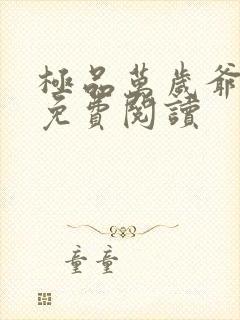 極品萬歲爺
免費閱讀
童童